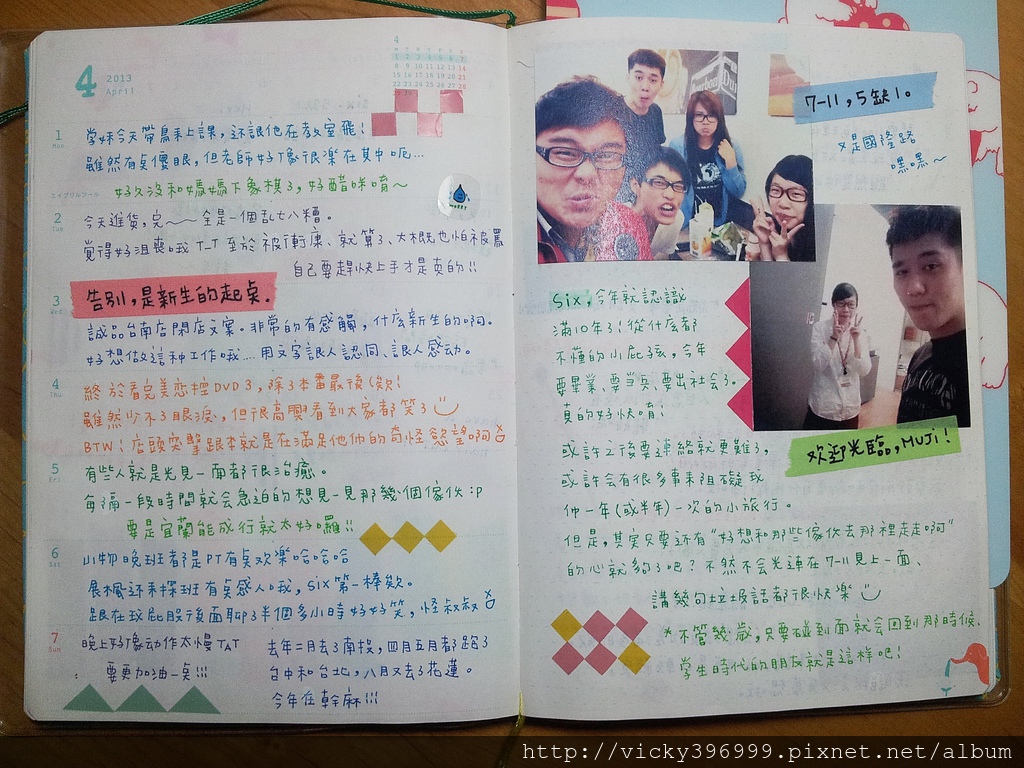 4 2013
April
4
1
Mon
學妹今天帶鳥來上課，还讓他在教室飛！
雖然有点傻眼，但老師好像很樂在其中呃…
好久沒和媽媽下象棋了，好醋咪唷～
2
Tue
今天進貨，完～～全是一個乱七八糟。
覺得好沮喪哦我 T-T 至於被衝康、就算了、大概也怕被罵
自己要趕快上手才是真的!!
3
Wed
告別，是新生的起点．
誠品台南店閉店文案。非常的有感觸，什麼新生的啊。
好想做這种工作哦…. 用文字讓人認同、讓人感动。
4
Thu
終於看完美恋控DVD了，除了本番最後(欸!
雖然少不了眼淚，但很高興看到大家都笑了
BTW！店頭突擊跟本就是在滿足他們的奇怪慾望啊
5
Fri
有些人就是光見一面都很治癒。
每隔一段時間就会急迫的想見一見那幾個傢伙:p
要是宜蘭能成行就太好囉!!
6
Sat
小物晚班都是PT有点欢樂哈哈哈
展楓还來探班有点感人哦，six第一棒欸。
跟在我屁股後面聊了半個多小時好好笑，怪叔叔
7
Sun
晚上好像动作太慢TAT
要更加油一点!!!
去年二月去南投，四月五月都跑了
台中和台北，八月又去了花蓮。
今年在幹麻!!!
7-11，5缺1。
又是國隆路
嘿嘿～
Six，今年就認識
滿10年了！從什麼都
不懂的小屁孩，今年
要畢業、要当兵、要出社会了。
真的好快唷！
欢迎光臨，MUJi！
或許之後要連絡就更難了，
或許会有很多事來阻礙我
們一年(或半年)一次的小旅行。
但是，其实只要还有“好想和那些傢伙去那裡走走啊”
的心就夠了吧？不然不会光連在7-11見上一面、
講幾句垃圾話都很快樂
*不管幾歲，只要碰到面就会回到那時候、
学生時代的朋友就是這樣吧！
http://vicky396999.pixnet.net/album